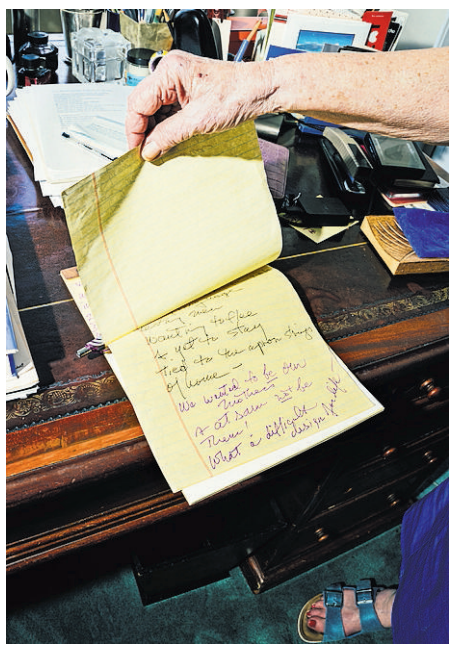 wanting to flee
& yet to stay
tied to the apron strings
of home –
We wanted to be our
mothers
& at same not be
Them!
What a difficult
design for life